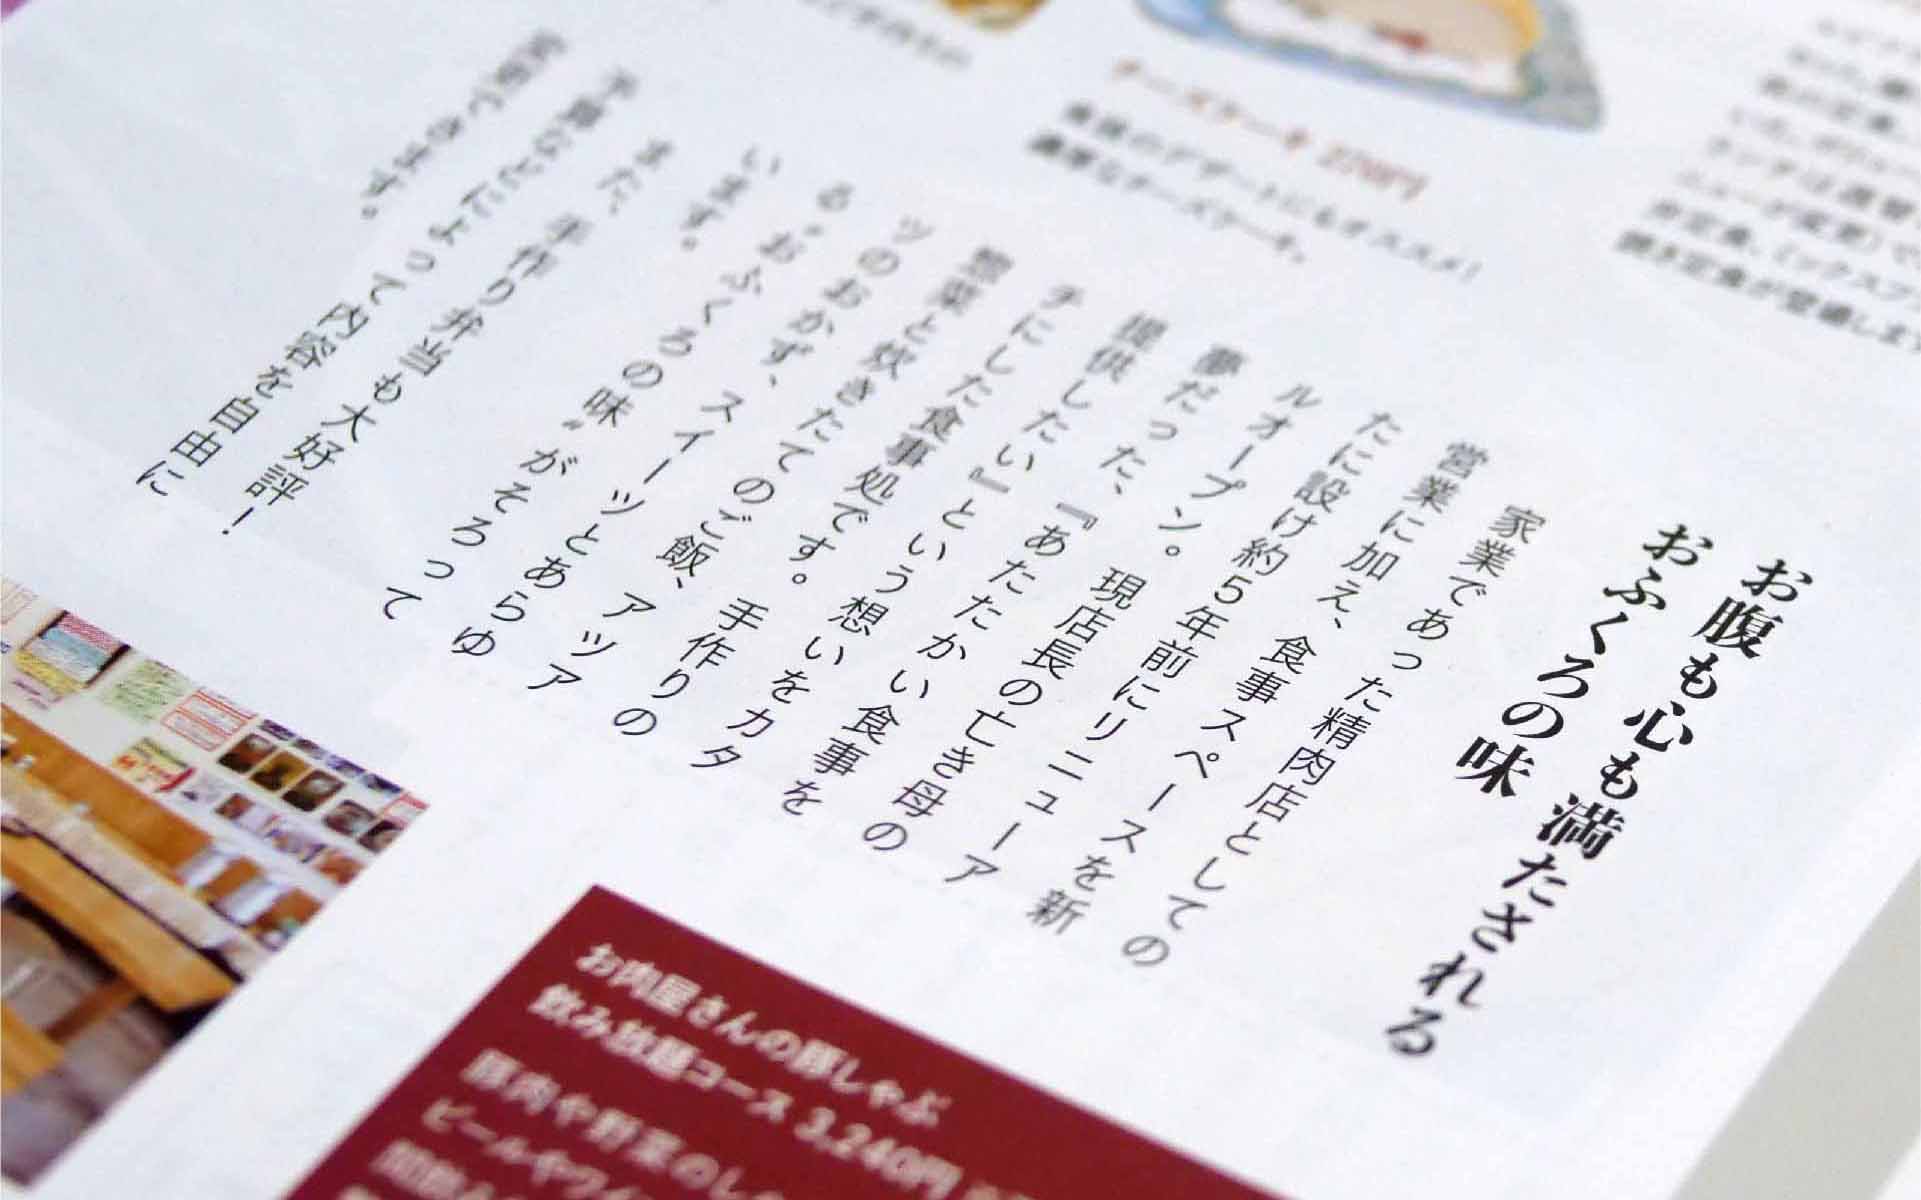 お腹も心も満たされる
おふくろの味
家業であった精肉店としての
営業に加え、食事スペースを新
たに設け約5年前にリニューア
ルオープン。現店長の亡き母の
夢だった、『あたたかい食事を
提供したい』という想いをカタ
チにした食事処です。手作りの
惣菜と炊きたてのご飯、アツア
ツのおかず、スイーツとあらゆ
る〝おふくろの味〟がそろって
います。
また、手作り弁当も大好評!
予算などによって内容を自由に
変更できます。
チーズケーキ 270円
食後のデザートにもオススメ!
濃厚なチーズケーキ。
お肉屋さんの豚しゃぶ
飲み放題コース 3,240円
豚肉や野菜のし
ビールやワイ